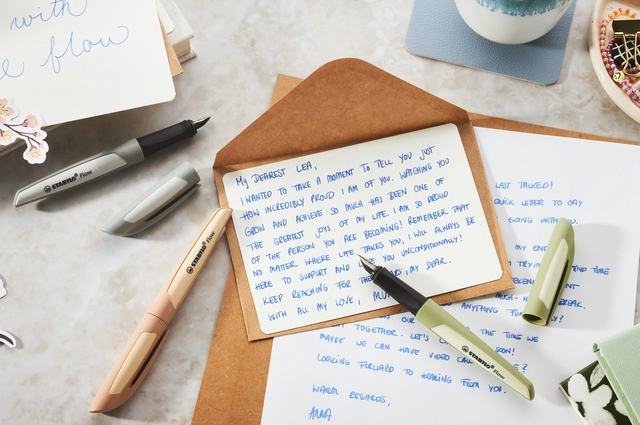 with
flow
STABILO flow
STABILO flow
My DEAREST LEA,
I WANTED TO TAKE A MOMENT TO TELL YOU JUST
HOW INCREDIBLY PROUD I AM OF YOU. WATCHING YOU
GROW AND ACHIEVE SO MUCH HAS BEEN ONE OF
THE GREATEST JOYS OF MY LIFE. I AM SO PROUD
OF THE PERSON YOU ARE BECOMING! REMEMBER THAT
NO MATTER WHERE LIFE TAKES YOU, I WILL ALWAYS BE
HERE TO SUPPORT AND LOVE YOU UNCONDITIONALLY!
KEEP REACHING FOR THE MY DEAR.
WITH ALL MY LOVE,
STABILO flow
LAST TALKED!
QUICK LETTER TO SAY
GOING WITH YOU.
MY
TIME
BREAK.
OUR THE TIME WE
TOGETHER. LET'S SOON!
MAYBE WE CAN HAVE VIDEO CALL
LOOKING FORWARD TO HEARING FROM YOU.
WARM REGARDS,
ANNA